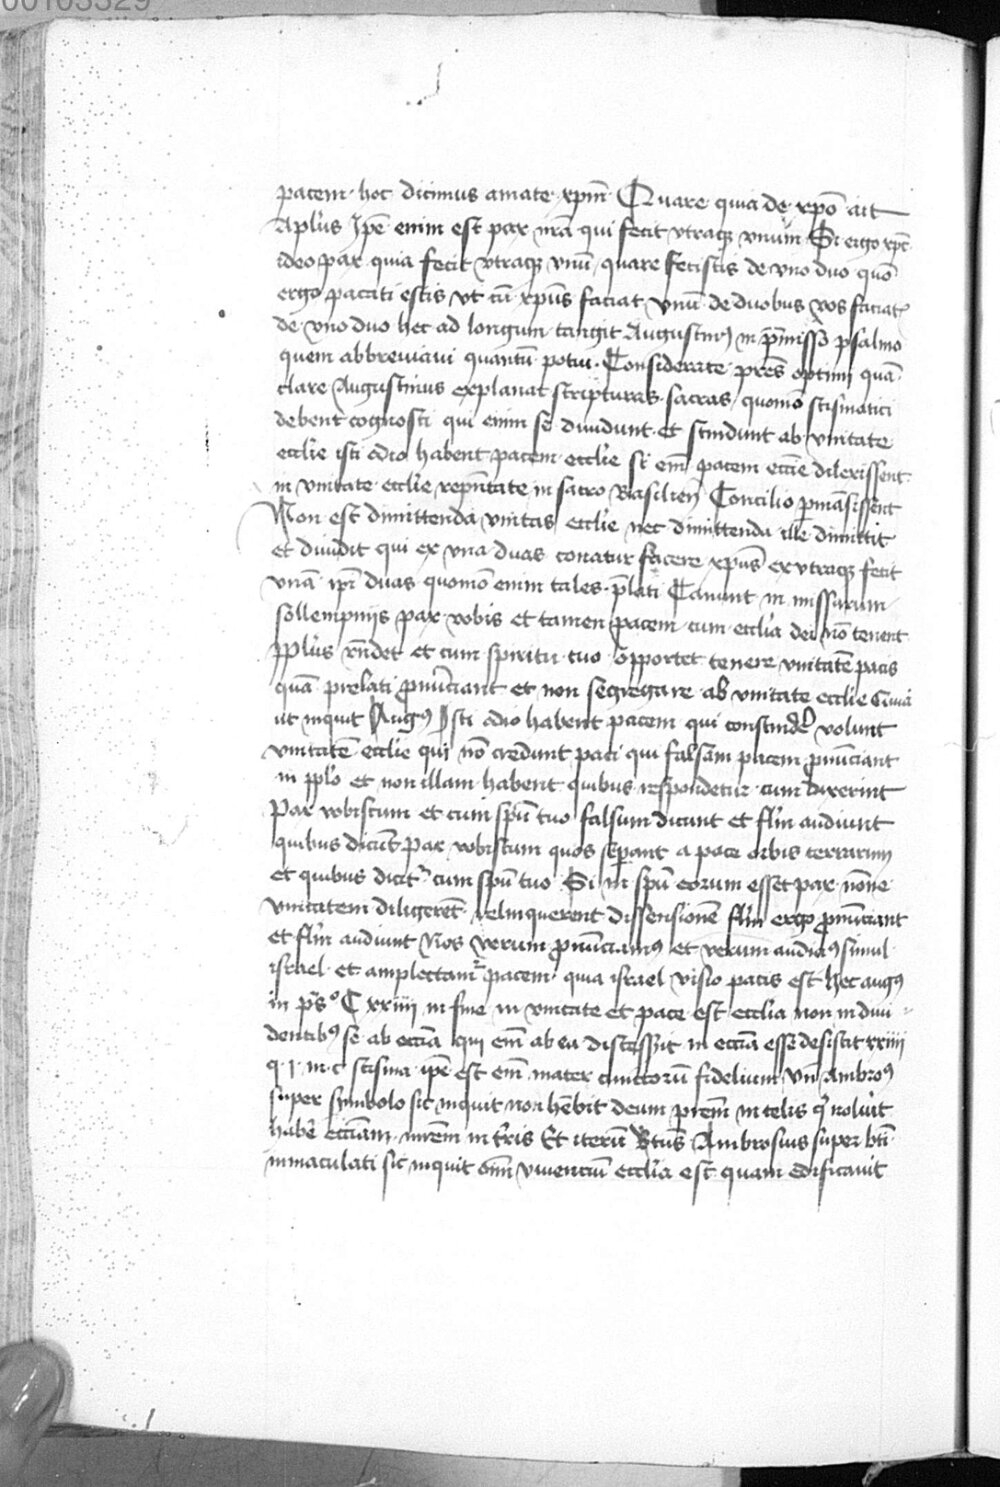 00103329
pacem hoc dicimus amate xpm̄ Quare quia de xpō ait
Aplūs Ipē enim est pax nr̄a qui fecit vtraqꝫ vnum Si ergo xpc̄
ideo pax quia fecit vtraqꝫ vnū quare fecistis de vno duo quō
ergo pacati estis vt cū xpūs faciat vnū de duobus vos faciatꝭ
de vno duo hec ad longum tangit Augustinꝰ in p̄misso psalmo
quem abbreviavi quantū potui Considerate pr̄es optimi quā
clare Augustinus explanat scripturas sacras quomō scismatici
debent cognosci qui enim se diuidunt et scindunt ab vnitate
ecclīe isti odio habent pacem ecclīe si em̄ pacem ecclīe dilexissent
in vnitate ecclīe repn̄tate in sacro Basilien̄ Concilio ꝑmāsissent
Non est dimittenda vnitas ecclīe nec dimittenda ille dimittit
et diuidit qui ex vna duas conatur facere xpūs ex vtraqꝫ fecit
vnā ipī duas quomō enim tales p̄lati Canunt in missarum
sollempniis pax vobis et tamen pacem cum ecclīa dei nō tenent
pplūs rn̄det et cum spiritu tuo opportet tenere vnitatē pacis
quā prelati ꝓnūciant et non segregare ab vnitate ecclīe
ut inquit Augꝰ Isti odio habent pacem qui conscindēr volunt
vnitatē ecclīe qui nō credunt paci qui falsam pacem ꝓnūciant
in pplō et non illam habent quibus respondetur cum dixerint
Pax vobiscum et cum spū tuo falsum dicunt et flm̄ audiunt
quibus dicūt pax vobiscum quos seꝑant a pace orbis terrarum
et quibus dicitᷣ cum spū tuo Si in spū eorum esset pax nōne
vnitatem diligerēt relinquerent dissensionē flm̄ ergo ꝓnūciant
et flm̄ audiunt Nos verum ꝓnūciamꝰ et verum audiamꝰ simul
israel et amplectamᷣ pacem quia israel visio pacis est hec augꝰ
in ps̄º Cxxiiii in fine in vnitate et pace est ecclīa non in diui
dentibꝰ se ab eccīa qui em̄ ab ea discesserit in eccīa esse desistit xxiiii
q i in c scisma ipē est em̄ mater cunctorū fidelium vn̄ Ambroꝰ
super symbolo sic inquit non hēbit deum prēm in celis qͥ noluit
habē ecciam mrēm in tr̄is Et iterū Btūs Ambrosius super bti
inmaculati sic inquit om̄ viuenciū ecclīa est quam edificauit